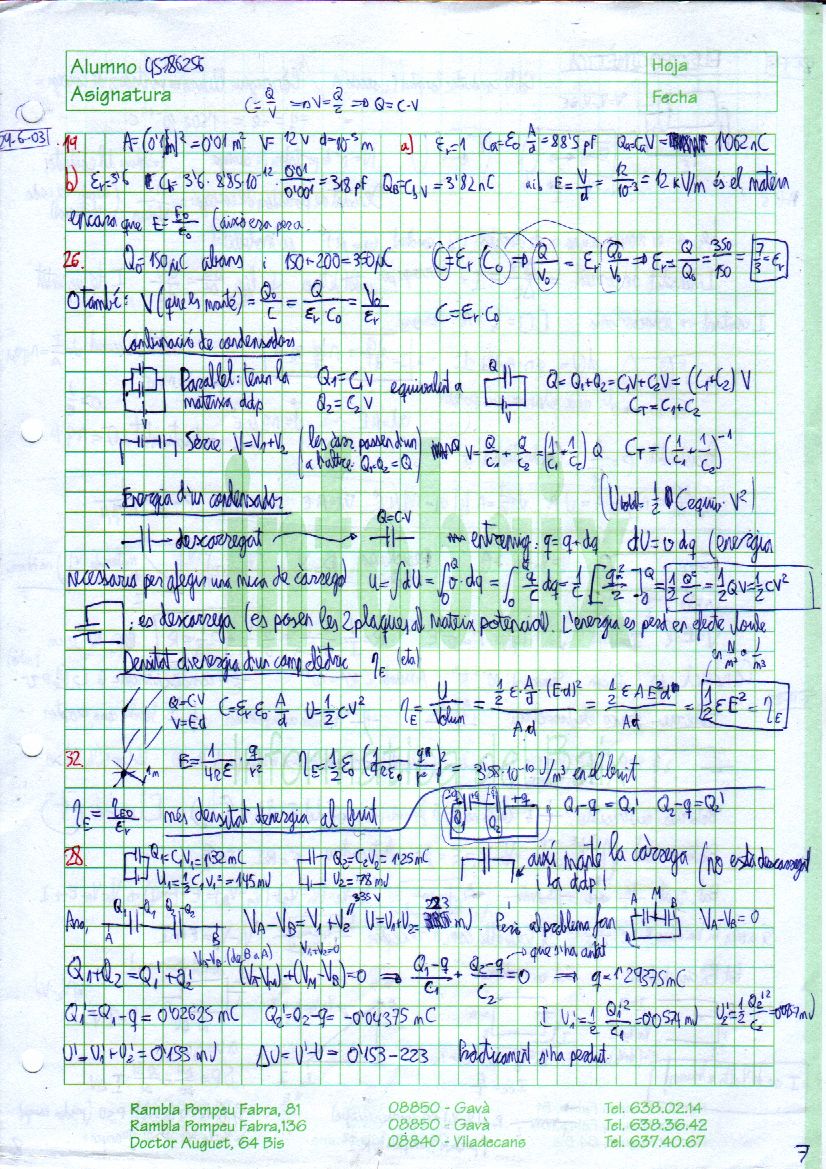 Alumno 45786256 Hoja
Asignatura Fecha
C=Q/V ⇒ V=Q/C ⇒ Q=C·V
24-6-03 19 A=(0'1m)²=0'01 m² V=12V d=10⁻³m a) εr=1 Ca=ε0 A/d=88'5 pF Qa=CaV= 1'062 nC
b) εr=3'6 Cb=3'6·8'85·10⁻¹²·0'01/0'001=318 pF Qb=CbV=3'82 nC a i b E=V/d=12/10⁻³=12 kV/m és el mateix
encara que E=E0/εr (això era per a
26. Q0=150 μC abans i 150+200=350 μC C=εr·C0 ⇒ Q/V0=εr Q0/V0 ⇒ εr=Q/Q0=350/150=7/3=εr
O també: V (que es manté)=Q0/C=Q/εr·C0=V0/εr C=εr·C0
Combinació de condensadors
Paral·lel: tenen la mateixa ddp Q1=C1V Q2=C2V equivalent a Q V Q=Q1+Q2=C1V+C2V=(C1+C2)V CT=C1+C2
Sèrie. V=V1+V2 (les càrr. passen d'un a l'altre. Q1=Q2=Q) V=Q/C1+Q/C2=(1/C1+1/C2)Q CT=(1/C1+1/C2)⁻¹
Energia d'un condensador (Utotal=1/2 Cequiv·V²)
descarregat Q=C·V entremig: q=q+dq dU=v dq (energia
necessària per afegir una mica de càrrega) U=∫dU=∫₀^Q v·dq=∫₀^Q q/C dq=1/C[q²/2]₀^Q=1/2 Q²/C=1/2QV=1/2CV²
: es descarrega (es posen les 2 plaques al mateix potencial). L'energia es perd en efecte Joule
Densitat d'energia d'un camp elèctric ηE (eta) en N/m² o J/m³
Q=CV V=Ed C=εrε0 A/d U=1/2CV² ηE=U/Volum=1/2 ε·A/d (Ed)²/A·d=1/2 εAE²d/Ad=1/2εE²=ηE
32. 1m E=1/4πε·q/r² ηE=1/2ε0(1/4πε0 q/r²)²=3'58·10⁻¹⁰ J/m³ en el buit
ηE=ηE0/εr més densitat d'energia al buit -q +q -q +q Q1 Q2 Q1-q=Q1' Q2-q=Q2'
28. Q1=C1V1=1'32 mC U1=1/2C1V1²=145 mJ Q2=C2V2=1'25 mC U2=78 mJ així manté la càrrega (no està descarregat i la ddp!
Ara, Q1 -Q1 Q2 -Q2 A B VA-VB=V1+V2 335 V U=U1+U2=223 mJ. Però al problema fan A M B VA-VB=0
VA-VB (de B a A) V1+V2=0 que s'ha anat
Q1+Q2=Q1'+Q2' (VA-VM)+(VM-VB)=0 ⇒ Q1-q/C1+Q2-q/C2=0 ⇒ q=1'29375 mC
Q1'=Q1-q=0'02625 mC Q2'=Q2-q=-0'04375 mC I U1'=1/2 Q1'²/C1=0'0574 mJ U2'=1/2 Q2'²/C2=0'0957 mJ
U'=U1'+U2'=0'153 mJ ΔU=U'-U=0'153-223 Pràcticament s'ha perdut.
Rambla Pompeu Fabra, 81 08850 - Gavà Tel. 638.02.14
Rambla Pompeu Fabra,136 08850 - Gavà Tel. 638.36.42
Doctor Auguet, 64 Bis 08840 - Viladecans Tel. 637.40.67
7